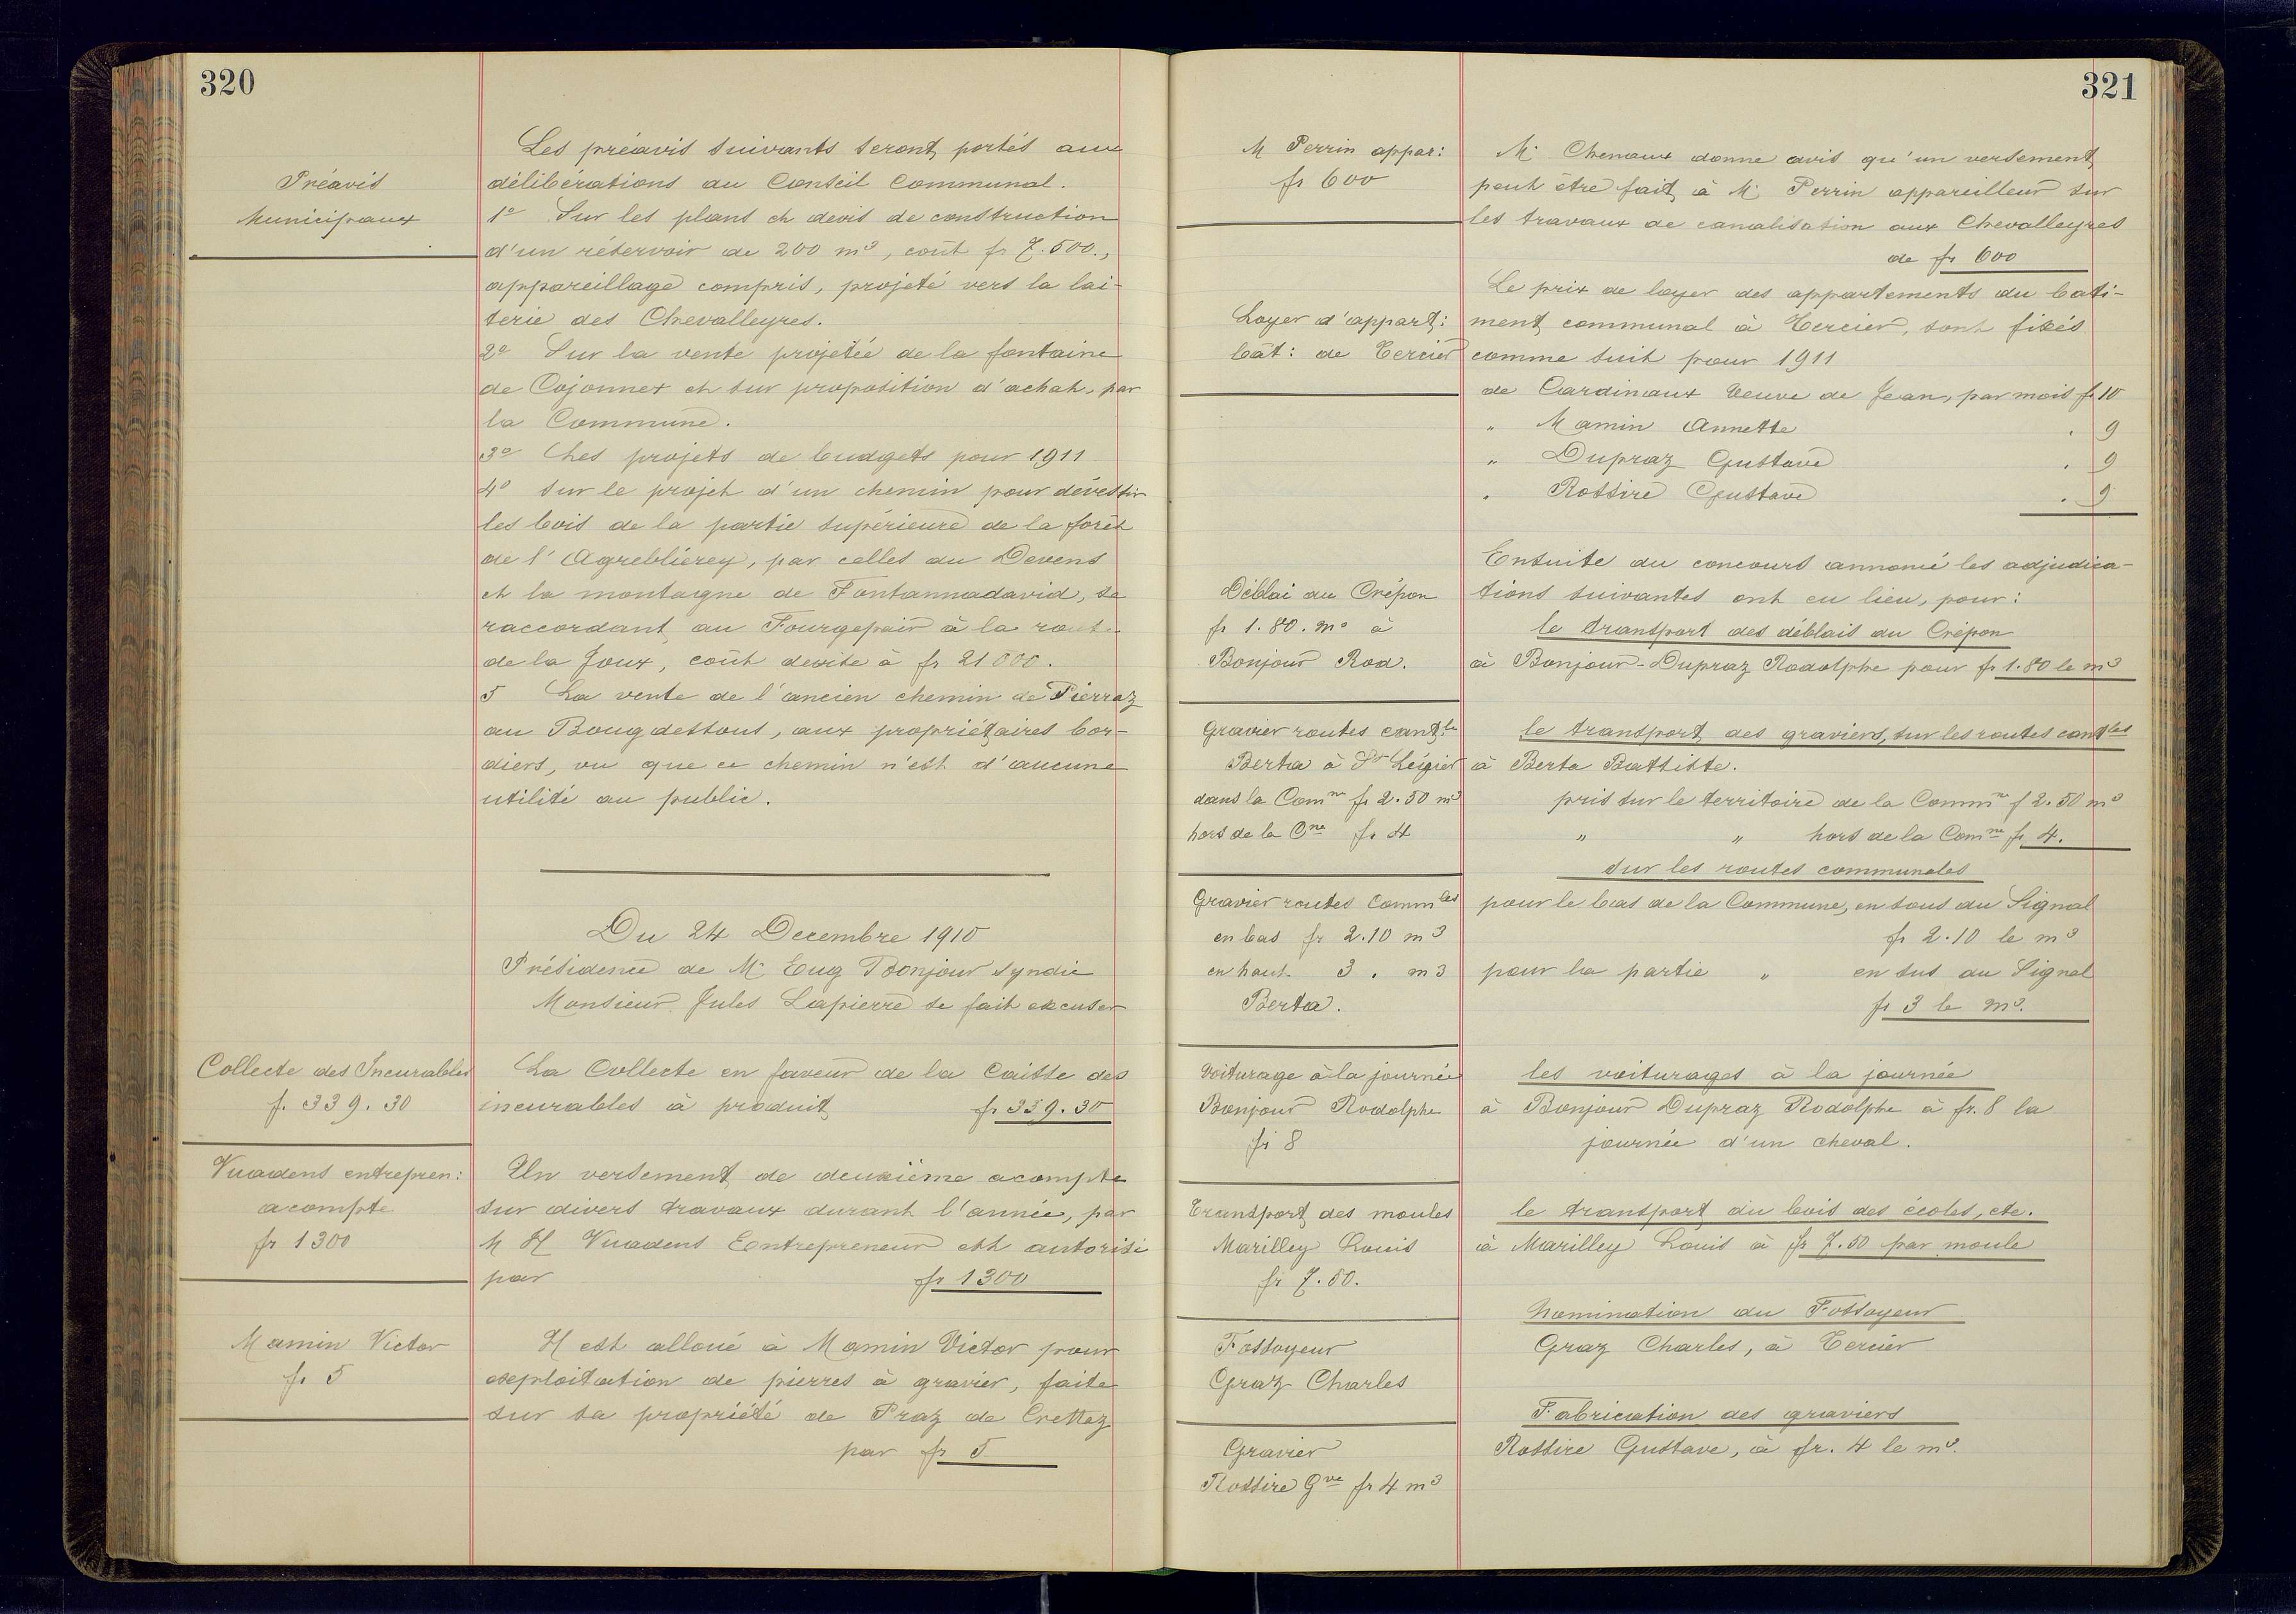 320
Préavis
Municipaux
Les préavis suivants seront portés aux
délibérations du Conseil Communal.
1° Sur les plans et devis de construction
d'un réservoir de 200 m3, coût fr 7.500.,
appareillage compris, projeté vers la lai-
terie des Chevalleyres.
2° Sur la vente projetée de la fontaine
de Cojonnex et sur proposition d'achat, par
la Commune.
3° Les projets de budgets pour 1911
4° Sur le projet d'un chemin pour dévestir
les bois de la partie supérieure de la forêt
de l'Agreblierey, par celles du Devens
et la montagne de Fontannadavid, se
raccordant au Fourgepair à la route
de la Joux, coût devisé à fr 21000.
5 La vente de l'ancien chemin de Pierraz
au Bougdessous, aux propriétaires bor-
diers, vu que ce chemin n'est d'aucune
utilité au public.
Du 24 Decembre 1910
Présidence de Mr Eug Bonjour Syndic
Monsieur Jules Lapierre se fait excuser
Collecte des Incurables
f. 339.30
La Collecte en faveur de la Caisse des
incurables à produit fr 339.30
Vuadens entrepren:
acompte
fr 1300
Un versement de deuxième acompte
sur divers travaux durant l'année, par
M H Vuadens Entrepreneur est autorisé
par fr 1300
Mamin Victor
fr 5
Il est alloué à Mamin Victor pour
exploitation de pierres à gravier, faite
sur sa propriété de Praz de Crettaz
par fr 5
321
M Perrin appar:
fr 600
Mr Chenaux donne avis qu'un versement
peut être fait à Mr Perrin appareilleur sur
les travaux de canalisation aux Chevalleyres
de fr 600
Loyer d'appart:
bât: de Tercier
Le prix de loyer des appartements du bati-
ment communal à Tercier, sont fixés
comme suit pour 1911
de Cardinaux Veuve de Jean, par mois fr 10
" Mamin Annette " 9
" Dupraz Gustave " 9
" Rossire Gustave " 9
Déblai du Crépon
fr 1.80. m3 à
Bonjour Rod.
Ensuite du concours annoncé les adjudica-
tions suivantes ont eu lieu, pour:
le transport des déblais du Crépon
à Bonjour-Dupraz Rodolphe pour fr 1.80 le m3
Gravier routes cant.le
Berta à St Légier
dans la Comm ne fr 2.50 m3
hors de la Cne fr 4
le transport des graviers, sur les routes cant les
à Berta Battiste.
pris sur le territoire de la Comm ne f 2.50 m3
" " hors de la Comm ne fr 4.
Gravier routes Comm les
en bas fr 2.10 m3
en haut 3. m3
Berta.
sur les routes communales
pour le bas de la Commune, en sous du Signal
fr 2.10 le m3
pour la partie " en sus du Signal
fr 3 le m3.
Voiturage à la journée
Bonjour Rodolphe
fr 8
les voiturages à la journée
à Bonjour Dupraz Rodolphe à fr. 8 la
journée d'un cheval.
Transport des moules
Marilley Louis
fr 7.50.
le transport du bois des écoles, etc.
à Marilley Louis à fr 7.50 par moule
Fossoyeur
Graz Charles
Nomination du Fossoyeur
Graz Charles, à Tercier
Gravier
Rossire Gve fr 4 m3
Fabrication des graviers
Rossire Gustave, à fr. 4 le m3.